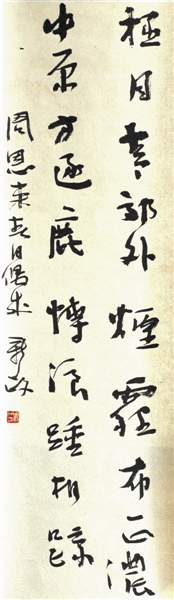 極目青郊外煙霾布正濃
中原方逐鹿博浪踵相踪
周恩来春日偶成